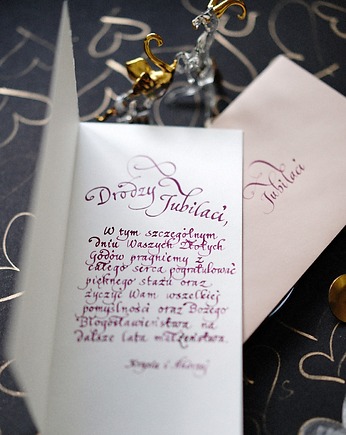 Drodzy Jubilaci,
W tym szczególnym
dniu Waszych Złotych
Godów pragniemy z
całego serca pogratulować
pięknego stażu oraz
życzyć Wam wszelkiej
pomyślności oraz Bożego
Błogosławieństwa na
dalsze lata małżeństwa.
Krysia i Andrzej
Jubilaci